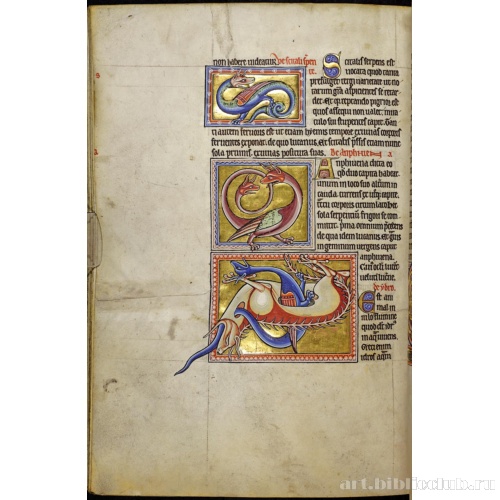 non habere uideatur. De scitali serpen
te.
Scitalis serpens est
uocata quod tanta
prefulget tergi uarietate ut no
tarum gra aspicientes se retar
det. Et quia reptando pigrior est
quos assequi non ualet. mira
culo sui stupentes capit. Tan
ti autem feruoris est ut etiam hyemis tempore exuuias corporis
feruentis exponat. de quo lucanus. Et scitalis sparsis etiam nunc
sola pruinis. exuuias positura suas. De Anphiuena
Anphiuena dicta eo
quod duo capita habeat
unum in loco suo alterum in
cauda. currens ex utroque capite.
tractu corporis circumlato. hec
sola serpentium frigori se com
mittit. prima omnium procedens
de qua idem lucanus. Et grauis
in geminum uergens caput
anphiuena.
Cui oculi lucent
ueluti lucerne.
de ydro.
Est ani
mal in
nilo flumine
quod est ydrus
in aqua uiuens.
Greci enim
idros aquam
art.biblioclub.ru